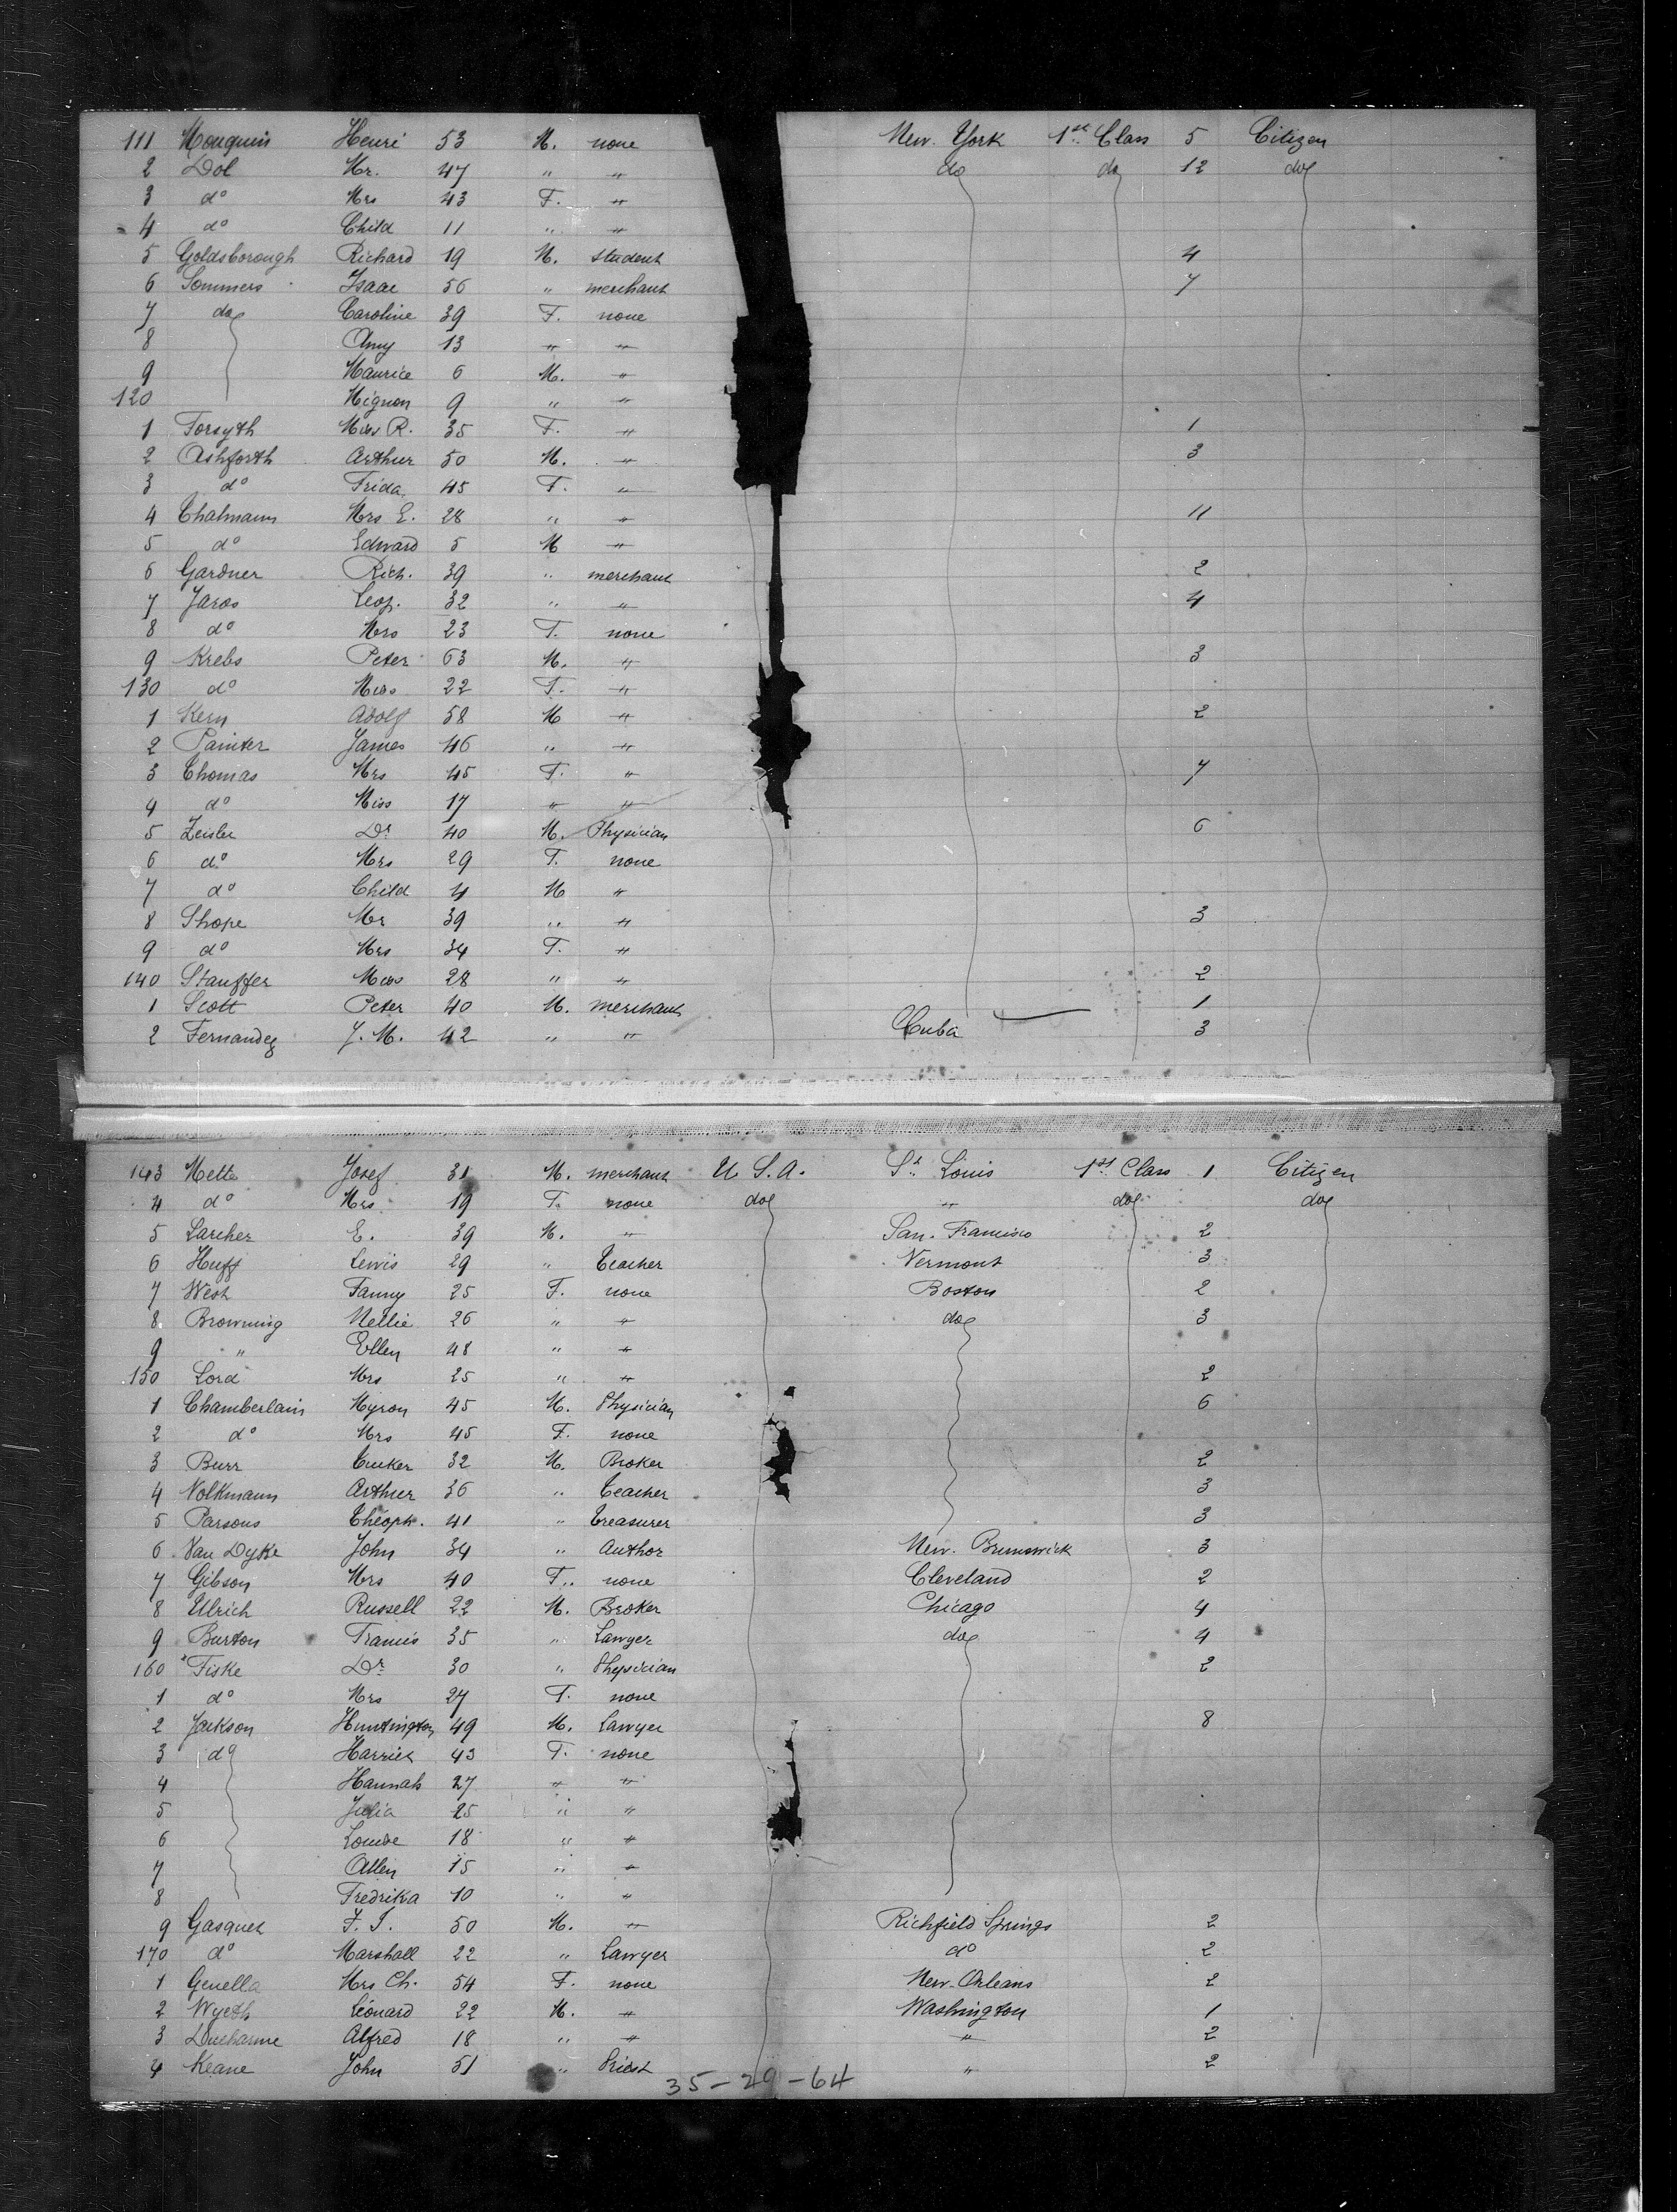 111 Mouquin Henri 53 M. none New York 1st Class 5 Citizen
2 Dol Mr. 47 " " do do 12 do
3 do Mrs 43 F. "
4 do Child 11 " "
5 Goldsborough Richard 19 M. student 4
6 Sommers Isaac 56 " merchant 7
7 do Caroline 39 F. none
8 Amy 13 " "
9 Maurice 6 M. "
120 Mignon 9 " "
1 Forsyth Miss R. 35 F. " 1
2 Ashforth Arthur 50 M. " 3
3 do Frida 45 F. "
4 Thalmann Mrs E. 28 " " 11
5 do Edward 5 M "
6 Gardner Rich. 39 " merchant 2
7 Jaros Leop. 32 " " 4
8 do Mrs 23 F. none
9 Krebs Peter 63 M. " 3
130 do Miss 22 F. "
1 Kern Adolf 58 M " 2
2 Painter James 46 " "
3 Thomas Mrs 45 F. " 7
4 do Miss 17 " "
5 Zeisler Dr 40 M. Physician 6
6 do Mrs 29 F. none
7 do Child 4 M "
8 Shope Mr 39 " " 3
9 do Mrs 34 F. "
140 Stauffer Miss 28 " " 2
1 Scott Peter 40 M. merchant 1
2 Fernandez J. M. 42 " " Cuba 3
143 Mette Josef 31 M. merchant U. S. A. St. Louis 1st Class 1 Citizen
4 do Mrs 19 F. none do " do do
5 Larcher E. 39 M. " San. Francisco 2
6 Huff Lewis 29 " Teacher Vermont 3
7 West Fanny 25 F. none Boston 2
8 Browning Nellie 26 " " do 3
9 " Ellen 48 " "
150 Lord Mrs 25 " " 2
1 Chamberlain Myron 45 M. Physician 6
2 do Mrs 45 F. none
3 Burr Tucker 32 M. Broker 2
4 Volkmann Arthur 36 " Teacher 3
5 Parsons Theoph. 41 " Treasurer 3
6 Van Dyke John 34 " Author New. Brunswick 3
7 Gibson Mrs 40 F. none Cleveland 2
8 Ullrich Russell 22 M. Broker Chicago 4
9 Burton Francis 35 " Lawyer do 4
160 Fiske Dr 30 " Physician 2
1 do Mrs 27 F. none
2 Jackson Huntington 49 M. Lawyer 8
3 do Harriet 43 F. none
4 Hannah 27 " "
5 Julia 25 " "
6 Louise 18 " "
7 Allen 15 " "
8 Fredrika 10 " "
9 Gasquet F. J. 50 M. " Richfield Springs 2
170 do Marshall 22 " Lawyer do 2
1 Genella Mrs Ch. 54 F. none New-Orleans 2
2 Wyeth Leonard 22 M. " Washington 1
3 Ducharme Alfred 18 " " " 2
4 Keane John 51 " Priest " 2
35-29-64